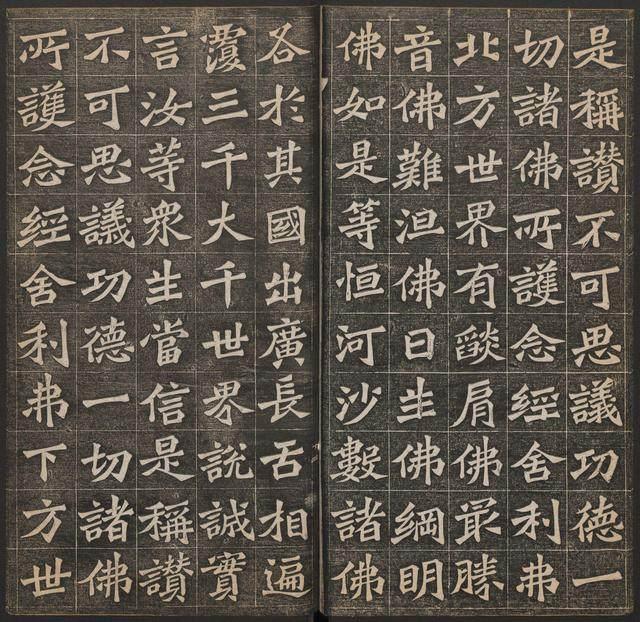 是稱讃不可思議功德一
切諸佛所護念經舍利弗
北方世界有燄肩佛最勝
音佛難沮佛日生佛網明
佛如是等恒河沙數諸佛
各於其國出廣長舌相遍
覆三千大千世界說誠實
言汝等衆生當信是稱讃
不可思議功德一切諸佛
所護念經舍利弗下方世